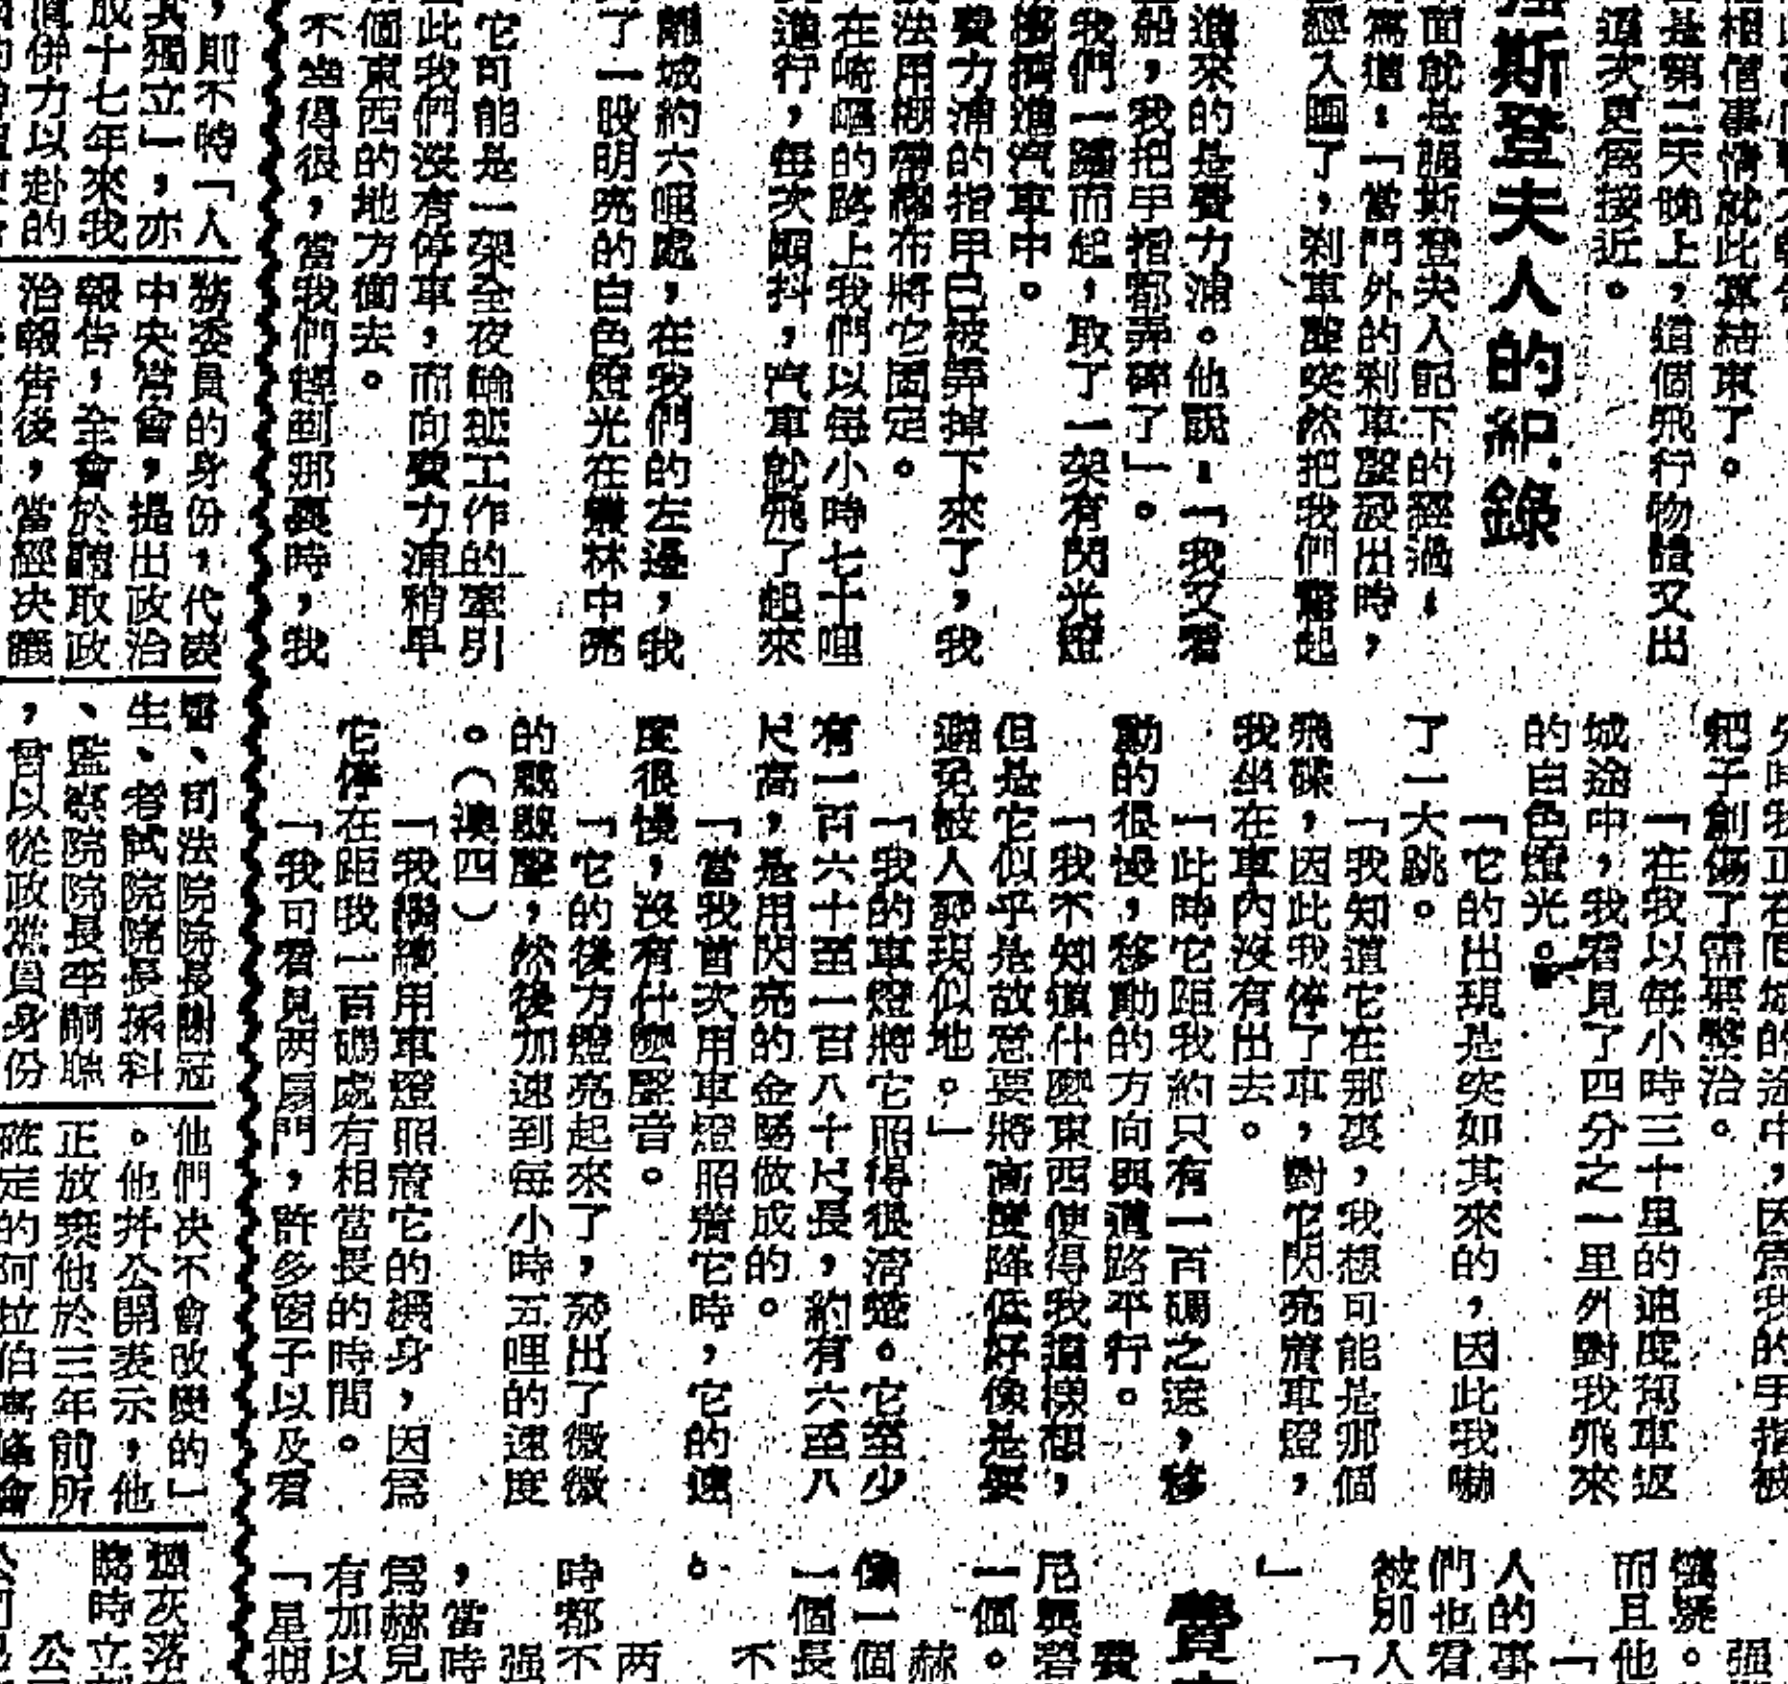 相信事情就此算結束了。
是第二天晚上，這個飛行物體又出
這次更爲接近。
斯登夫人的紀錄
面就是强斯登夫人記下的經過：
爲這：「當門外的剎車聲發出時，
經入睡了，剎車聲突然把我們驚起
進來的是費力浦。他說：「我又看
船，我把手指都弄碎了」。
我們一躍而起，取了一架有閃光燈
擠進汽車中。
費力浦的指甲已被弄掉下來了，我
法用綳帶膠布將它固定。
在崎嶇的路上我們以每小時七十哩
進行，每次顛抖，汽車就飛了起來
離城約六哩處，在我們的左邊，我
了一股明亮的白色燈光在叢林中亮
它可能是一架全夜輪班工作的牽引
此我們沒有停車，而向費力浦稍早
個東西的地方衝去。
不幸得很，當我們趕到那裏時，我
時我正在回城的途中，因爲我的手指被
靶子創傷了需要整治。
「在我以每小時三十里的速度駕車返
城途中，我看見了四分之一里外對我飛來
的白色燈光。
「它的出現是突如其來的，因此我嚇
了一大跳。
「我知道它在那裏，我想可能是那個
飛碟，因此我停了車，對它閃亮着車燈，
我坐在車內沒有出去。
「此時它距我約只有一百碼之遠，移
動的很慢，移動的方向與道路平行。
「我不知道什麼東西使得我這樣想，
但是它似乎是故意要將高度降低好像是要
避免被人發現似地。」
「我的車燈將它照得很清楚。它至少
有一百六十至一百八十尺長，約有六至八
尺高，是用閃亮的金屬做成的。
「當我首次用車燈照着它時，它的速
度很慢，沒有什麼聲音。
「它的後方燈亮起來了，發出了微微
的颼颼聲，然後加速到每小時五哩的速度
。（澳四）
「我繼續用車燈照着它的機身，因爲
它停在距我一百碼處有相當長的時間。
「我可看見两扇門，許多窗子以及看
懷疑。
而且他
人的事
們也看
被別人
」
費
尼與碧
一個。
赫
像一個
一個長
不
。
两
時都不
强
，當時
爲赫兒
有加以
「星期
，則不時「人
其獨立」，亦
成十七年來我
併力以赴的
務委員的身份，代表
中央常會，提出政治
報告，全會於聽取政
治報告後，當經決議
司法院院長謝冠
生、考試院院長孫科
、監察院院長李嗣璁
，曾以從政黨員身份
他們決不會改變的」
。他並公開表示，他
正放棄他於三年前所
確定的阿拉伯高峰會
臨時立